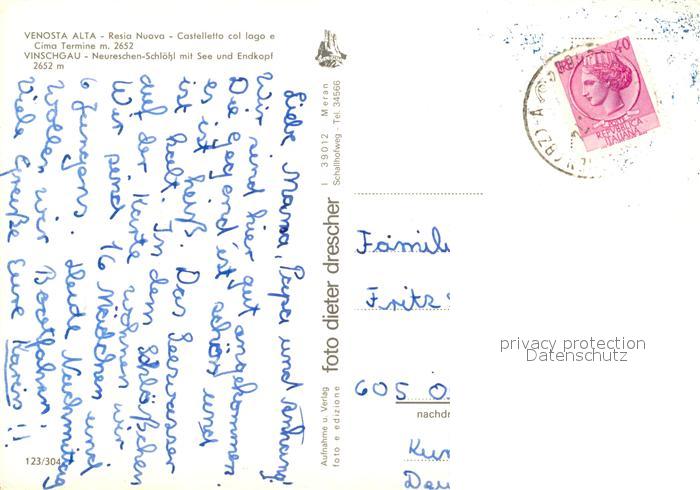 VENOSTA ALTA - Resia Nuova - Castelletto col lago e
Cima Termine m. 2652
VINSCHGAU - Neureschen-Schlößl mit See und Endkopf
2652 m
Liebe Mama, Papa und Anhang!
Wir sind hier gut angekommen.
Die Gegend ist schön und
es ist heiß. Das Seewasser
ist kalt. In dem Schlößchen
auf der Karte wohnen wir.
Wir sind 16 Mädchen und
6 Jungens. Heute Nachmittag
wollen wir Bootfahren.
Viele Grüße Eure Karin!!
123/304
I 39012 Meran
Schallhofweg - Tel. 34566
foto dieter drescher
Aufnahme u. Verlag
foto e edizione
40
POSTE
REPVBBLICA
ITALIANA
Famili
Fritz
605 O
nachdr
privacy protection
Datenschutz